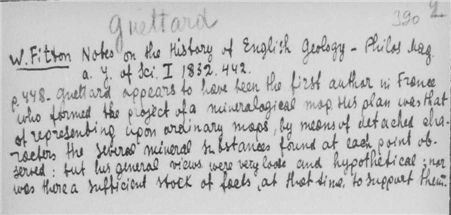 Guettard
390 2
W. Fitton Notes on the History of English Geology - Philos Mag.
a. J. of Sci. I 1832. 442.
p. 448 - Guettard appears to have been the first author in France
who formed the project of a mineralogical map. His plan was that
of representing upon ordinary maps, by means of detached cha-
racters the several mineral substances found at each point ob-
served; but his general views were very loose and hypothetical; nor
was there a sufficient stock of facts, at that time, to support them.